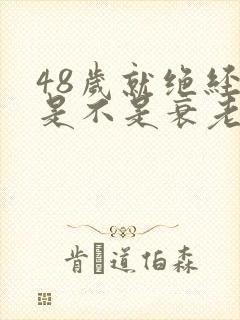 48歲就绝经
是不是衰老
肯道伯森